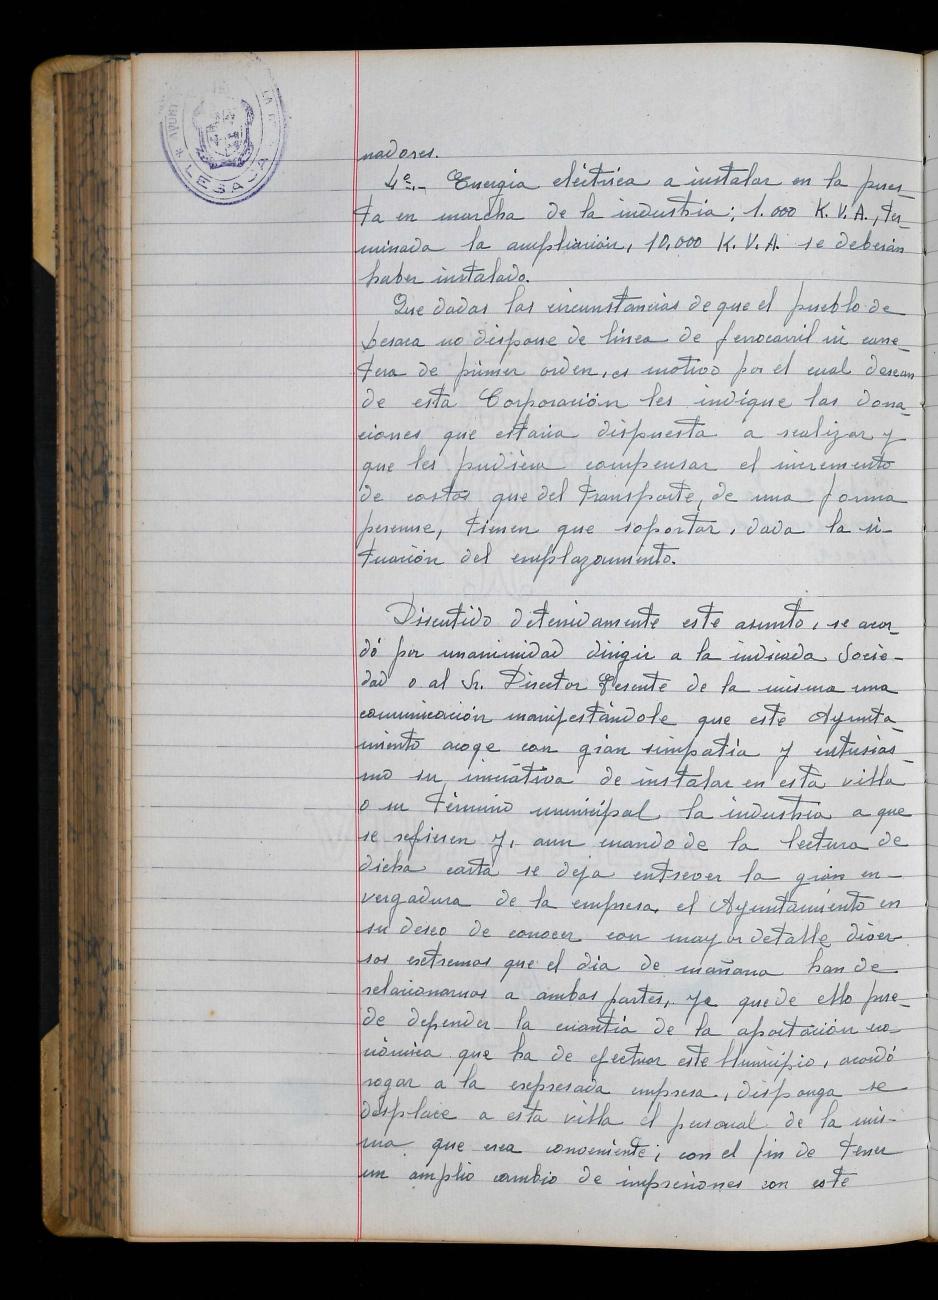 LESACA
nadores.
4º.- Energia eléctrica a instalar en la pues-
ta en marcha de la industria; 1.000 K.V.A., ter-
minada la ampliación, 10,000 K.V.A. se deberán
haber instalado.
Que dadas las circunstancias de que el pueblo de
Lesaca no dispone de línea de ferrocarril ni carre-
tera de primer orden, es motivo por el cual desean
de esta Corporación les indique las dona-
ciones que estaria dispuesta a realizar y
que les pudiera compensar el incremento
de costos que del transporte, de una forma
perenne, tienen que soportar, dada la si-
tuación del emplazamiento.
Discutido detenidamente este asunto, se acor-
dó por unanimidad dirigir a la indicada Socie-
dad o al Sr. Director Gerente de la misma una
comunicación manifestándole que este Ayunta-
miento acoge con gran simpatia y entusias-
mo su iniciativa de instalar en esta villa
o su término municipal la industria a que
se refieren y, aun cuando de la lectura de
dicha carta se deja entrever la gran en-
vergadura de la empresa, el Ayuntamiento en
su deseo de conocer con mayor detalle diver
sos extremos que el día de mañana han de
relacionarnos a ambas partes, ya que de ello pue-
de depender la cuantía de la aportación eco-
nómica que ha de efectuar este Municipio, acordó
rogar a la expresada empresa, disponga se
desplace a esta villa el personal de la mis-
ma que crea conveniente; con el fin de tener
un amplio cambio de impresiones con este